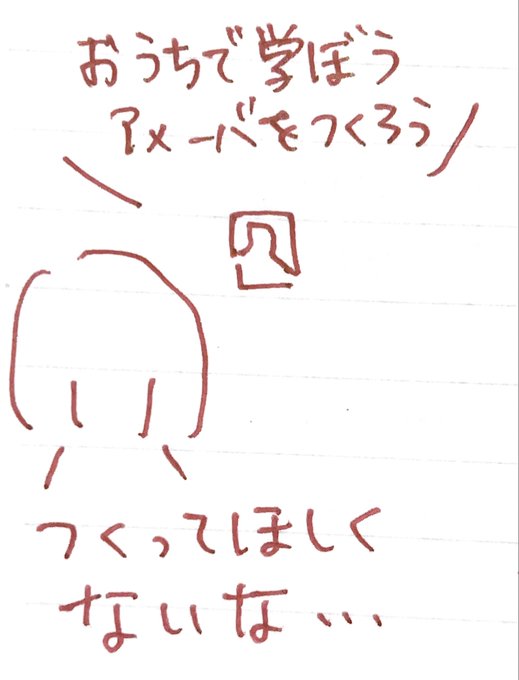 おうちで学ぼう
アメーバをつくろう
つくってほしく
ないな…